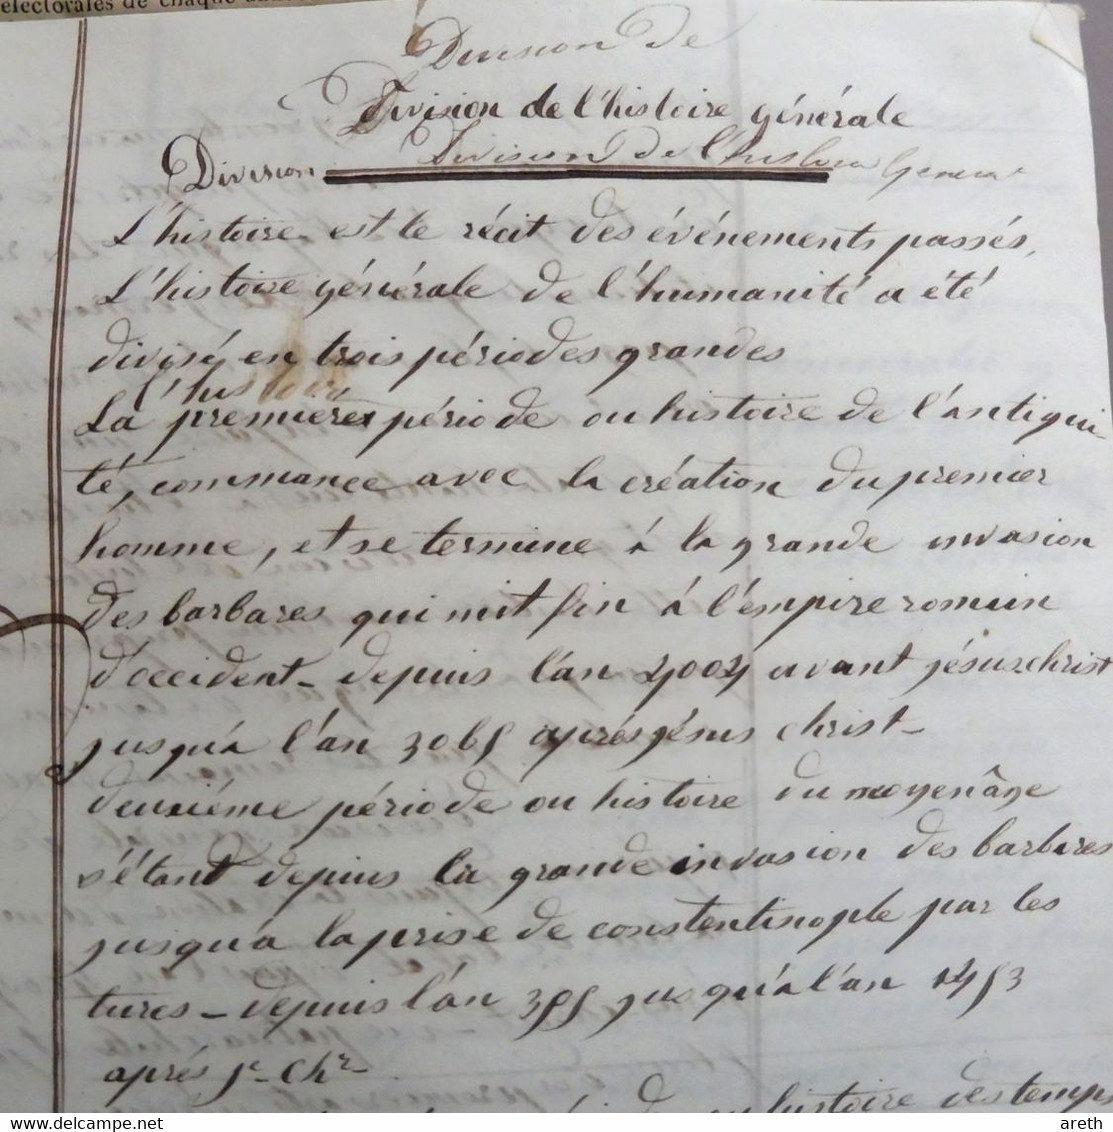 électorales de chaque
Division de
Division de l'histoire générale
Division de l'histoire
Division
L'histoire est le récit des événements passés,
L'histoire générale de l'humanité a été
divisé en trois périodes grandes
La première période ou histoire de l'antiqui-
té, commance avec la création du premier
homme, et se termine à la grande invasion
des barbares qui mit fin à l'empire romain
d'occident - depuis l'an 4004 avant jésus christ
jusqu'à l'an 3065 après jésus christ -
deuxiéme période ou histoire du moyen âge
s'étant depuis la grande invasion des barbares
jusqu'à la prise de constentinople par les
tures - depuis l'an 395 jusqu'à l'an 1453
après J- Chr-
histoire des temps
areth